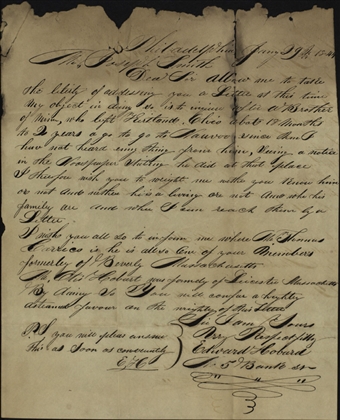 Philadelphia Jany 29th 1844
Mr Joseph Smith
Dear Sir Allow me to take
the liberty of addressing you a Letter at this time
My object in doing so is to inquire after a Brother
of Mine, who left Kirtland, Ohio about 18 Months
to 2 years a go to go to Nauvoo since then I
have not heard any thing from him, Seeing a notice
in the Newspaper stating he died at that place
I therefore wish you to me wether you know him
or not And wether he is a living or not And who his
family are and where I can reach them by a
Letter.
I might you all so to inform me where Mr Thomas
is, he is allso One of your Members
formerly of Beverly Massachusetts
Mr Hobart was formerly of Leicester Massachusetts
By doing so You will confer a highly
esteemed favour on the of this Letter
Sir I am Yours
Very Respectfully
Edward Hobard
No 5 Bank st
P.S. you will pleas answer
this as Soon as conveniently
E. H.